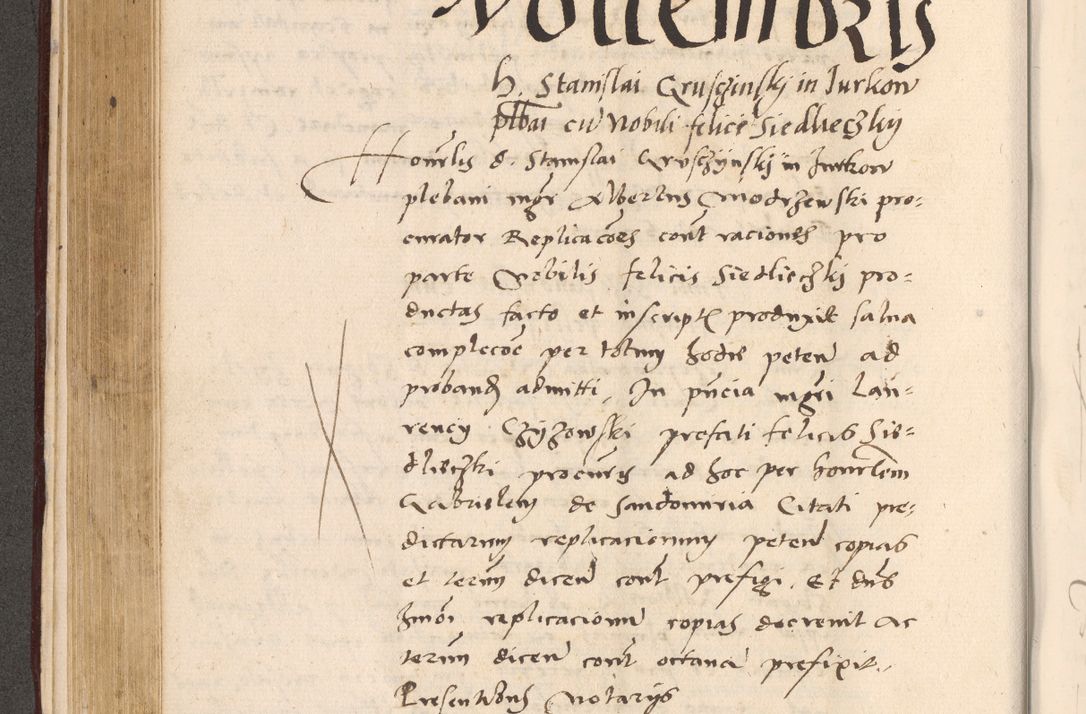 Novembris
h. Stanislai Gruszinskj in Jurkow
plbai cū Nobili felice Siedlieczkij
Honrlis d. Stanislai Gruszÿnskj in Jurkow
plebani mgr Albertus Modrzewski pro-
curator Replicacões cont raciones pro
parte Nobilis felicis Siedlieczkij pro-
ductas facto et in script produxit salua
complecõe per totum hodie peten ad
proband admitti, In pñcia mgri Lau-
rencij Czÿzowski prefati felicis Sie-
dlieczki procuris ad hoc per honrlem
Gabrielem de Sandomiria Citati pre-
dictarum replicacionum peten copias
et termi dicen cont prefigi. Et dns
Immoi replicacionu copias decreuit Ac
termi dicen cont octaua prefixit.
Presentibus Notarijs